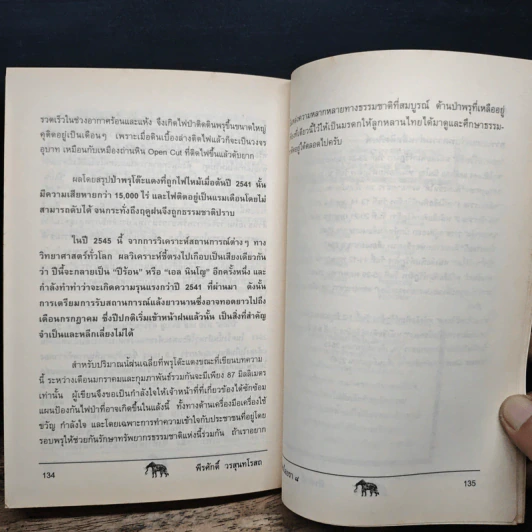 รวดเร็วในช่วงอากาศร้อนและแห้ง จึงเกิดไฟป่าติดดินพรุขึ้นขนาดใหญ่
คุติดอยู่เป็นเดือนๆ เพราะเมื่อดินเบื้องล่างติดไฟแล้วก็จะเป็นวงจร
อุบาท เหมือนกับเหมืองถ่านหิน Open Cut ที่ติดไฟขึ้นแล้วดับยาก
ผลโดยสรุปป่าพรุโต๊ะแดงที่ถูกไฟไหม้เมื่อต้นปี 2541 นั้น
มีความเสียหายกว่า 15,000 ไร่ และไฟติดอยู่เป็นแรมเดือนโดยไม่
สามารถดับได้ จนกระทั่งถึงฤดูฝนจึงถูกธรรมชาติปราบ
ในปี 2545 นี้ จากการวิเคราะห์สถานการณ์ต่างๆ ทาง
วิทยาศาสตร์ทั่วโลก ผลวิเคราะห์ชี้ตรงไปเกือบเป็นเสียงเดียวกัน
ว่า ปีนี้จะกลายเป็น "ปีร้อน" หรือ "เอล นินโญ" อีกครั้งหนึ่ง และ
กำลังทำท่าว่าจะเกิดความรุนแรงกว่าปี 2541 ที่ผ่านมา ดังนั้น
การเตรียมการรับสถานการณ์แล้งยาวนานซึ่งอาจทอดยาวไปถึง
เดือนกรกฎาคม ซึ่งปีปกติเริ่มเข้าหน้าฝนแล้วนั้น เป็นสิ่งที่สำคัญ
จำเป็นและหลีกเลี่ยงไม่ได้
สำหรับปริมาณน้ำฝนเฉลี่ยที่พรุโต๊ะแดงขณะที่เขียนบทความ
นี้ ระหว่างเดือนมกราคมและกุมภาพันธ์รวมกันจะมีเพียง 87 มิลลิเมตร
เท่านั้น ผู้เขียนจึงขอเป็นกำลังใจให้เจ้าหน้าที่ที่เกี่ยวข้องได้ซักซ้อม
แผนป้องกันไฟป่าที่อาจเกิดขึ้นในแล้งนี้ ทั้งทางด้านเครื่องมือเครื่องใช้
ขวัญ กำลังใจ และโดยเฉพาะการทำความเข้าใจกับประชาชนที่อยู่โดย
รอบพรุให้ช่วยกันรักษาทรัพยากรธรรมชาติแห่งนี้ร่วมกัน ถ้าเราอยาก
134
พีรศักดิ์ วรสุนทโรสถ
ความหลากหลายทางธรรมชาติที่สมบูรณ์ ด้านป่าพรุที่เหลืออยู่
ที่เดียวนี้ไว้ให้เป็นมรดกให้ลูกหลานไทยได้มาดูและศึกษาธรรม-
อยู่ได้ตลอดไปครับ
135